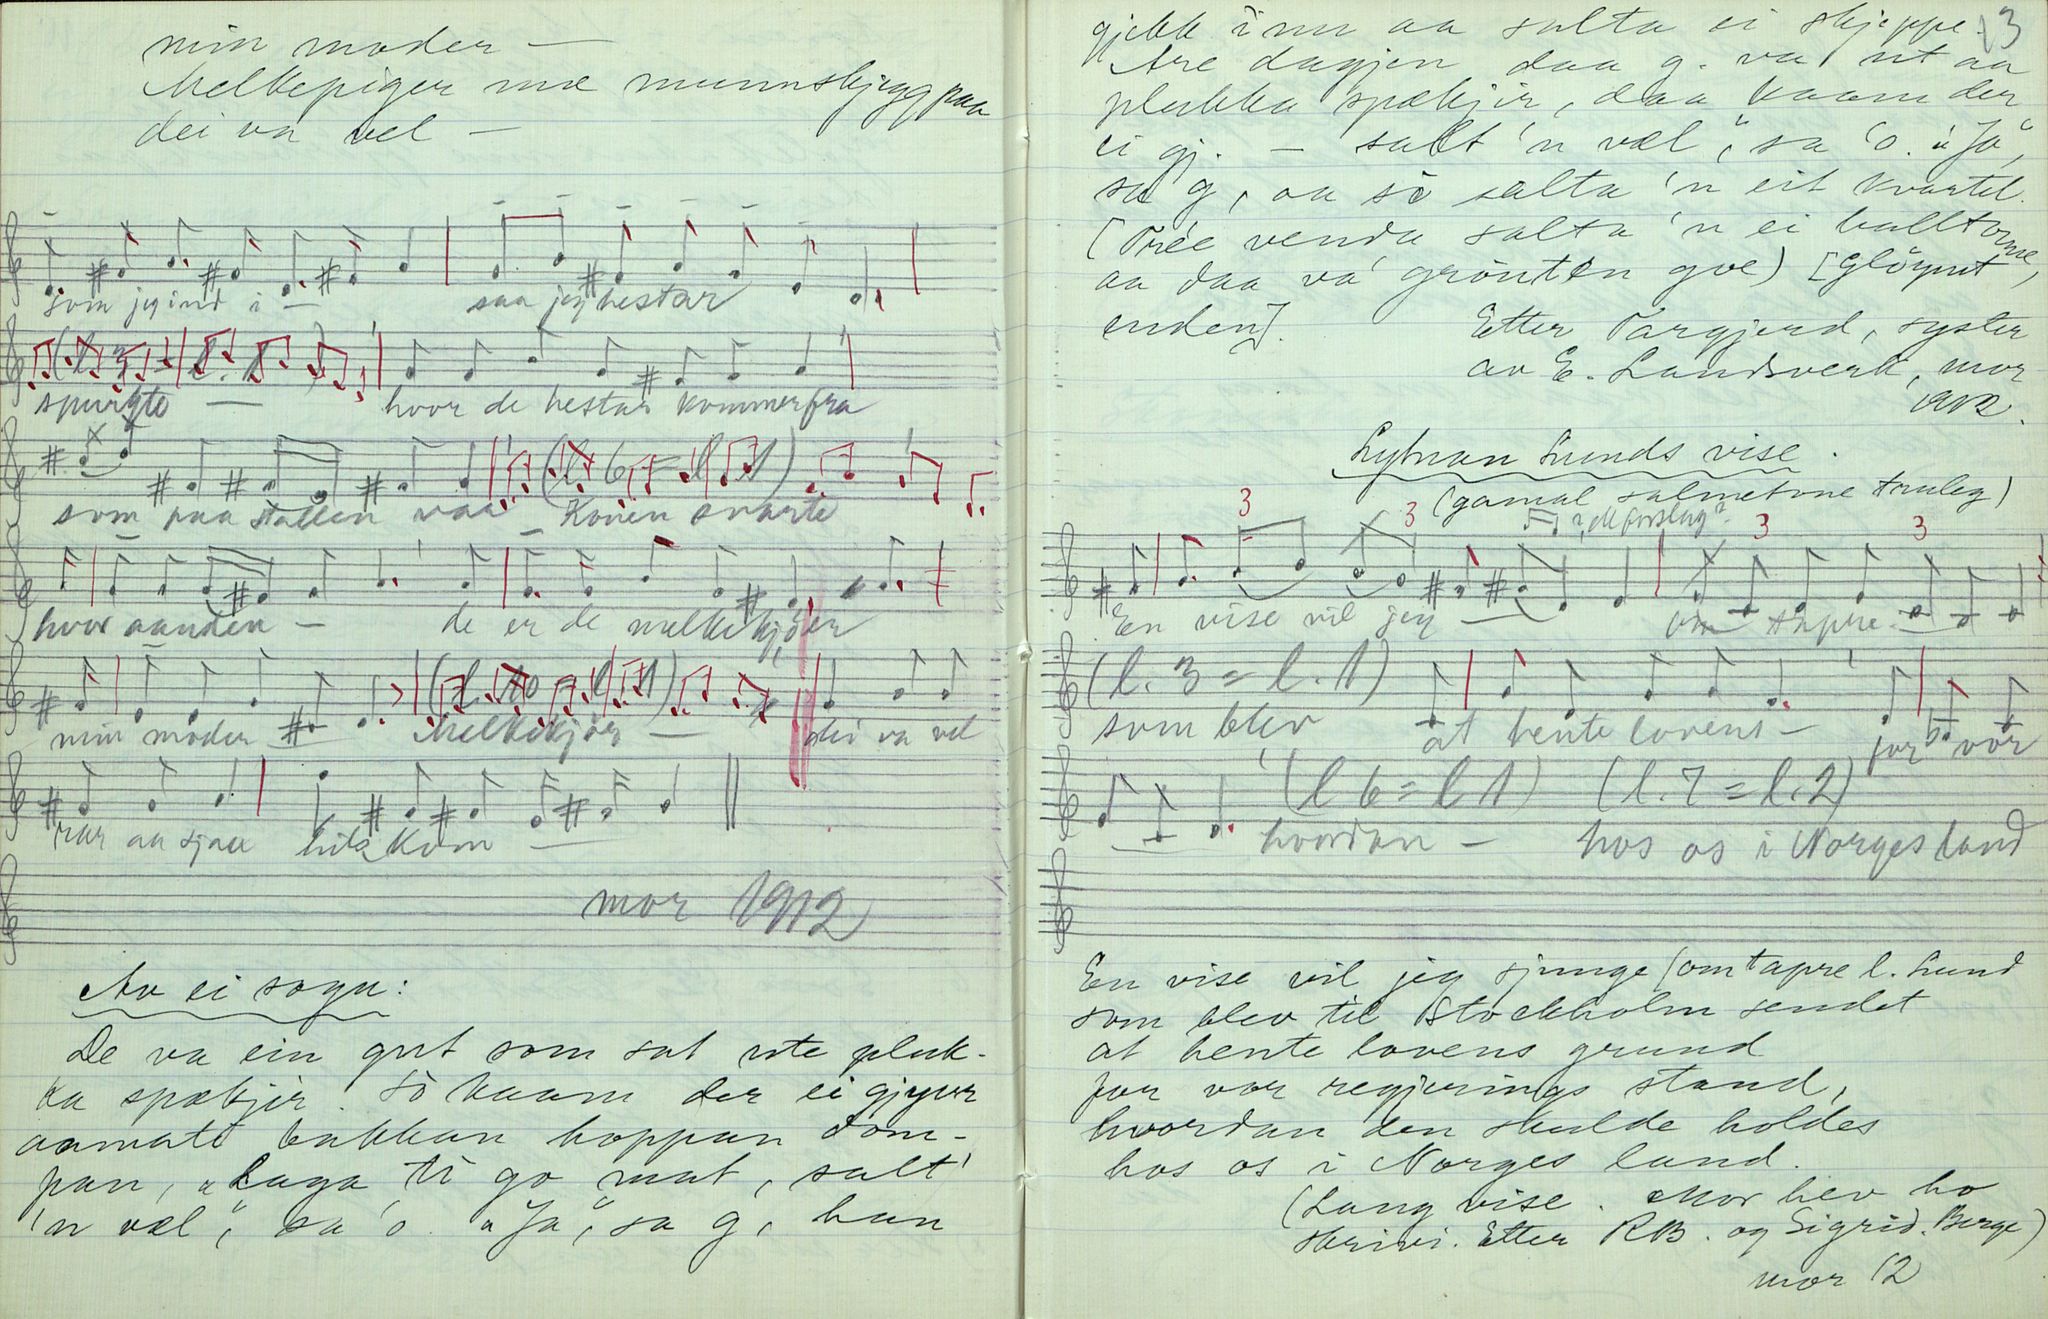 min moder —
Melkepiger me munnskjegg paa
dei va vel —
som jeg ind i — saa jeg hestar
spurgte — hvor de hestar kommer fra
som paa stallen var — Konen svarte
(l 6 = l 1)
hvor aanden — de er de melkekjøer
min moder — Melkekjør — dei va vel
(l 10 = l 1)
rar aa sjaa hils Kom —
mor 1912
Av ei sogu:
De va ein gut som sat ute pluk-
ka spækjir. Sò kaam der ei gjygur
bakkan hoppan dom-
pan, „Laga ti go mat, salt
'n vel", sa 'o. „Ja", sa g, han
13
gjekk inn aa salta ei skjeppe.
Are dagjen daa g. va ut aa
plukka spækjir, daa kaam der
ei gj. — salt 'n væl", sa 'o. „Ja",
sa g, aa sò salta 'n eit kvartel.
(Trée venda salta 'n ei halltonne,
aa daa va grönten goe) [Glöymt
enden].
Etter Targjerd, syster
av E. Landsverk, mor
1912.
Lytnan Lunds vise.
(gamal salmetone truleg)
3 3 3 3
En vise vil jeg — om tapre —
(l. 3 = l. 1)
som blev at hente lovens — for vor
(l 6 = l 1) (l. 7 = l. 2)
— hvordan — hos os i Norges land
En vise vil jeg sjunge / om tapre l. Lund
som blev til Stockholm sendet
at hente lovens grund
for vor regjerings stand,
hvordan den skulde holdes
hos os i Norges land.
(Lang vise. Mor hev ho
skrivi. Etter RB. og Sigrid. Berge)
mor 12